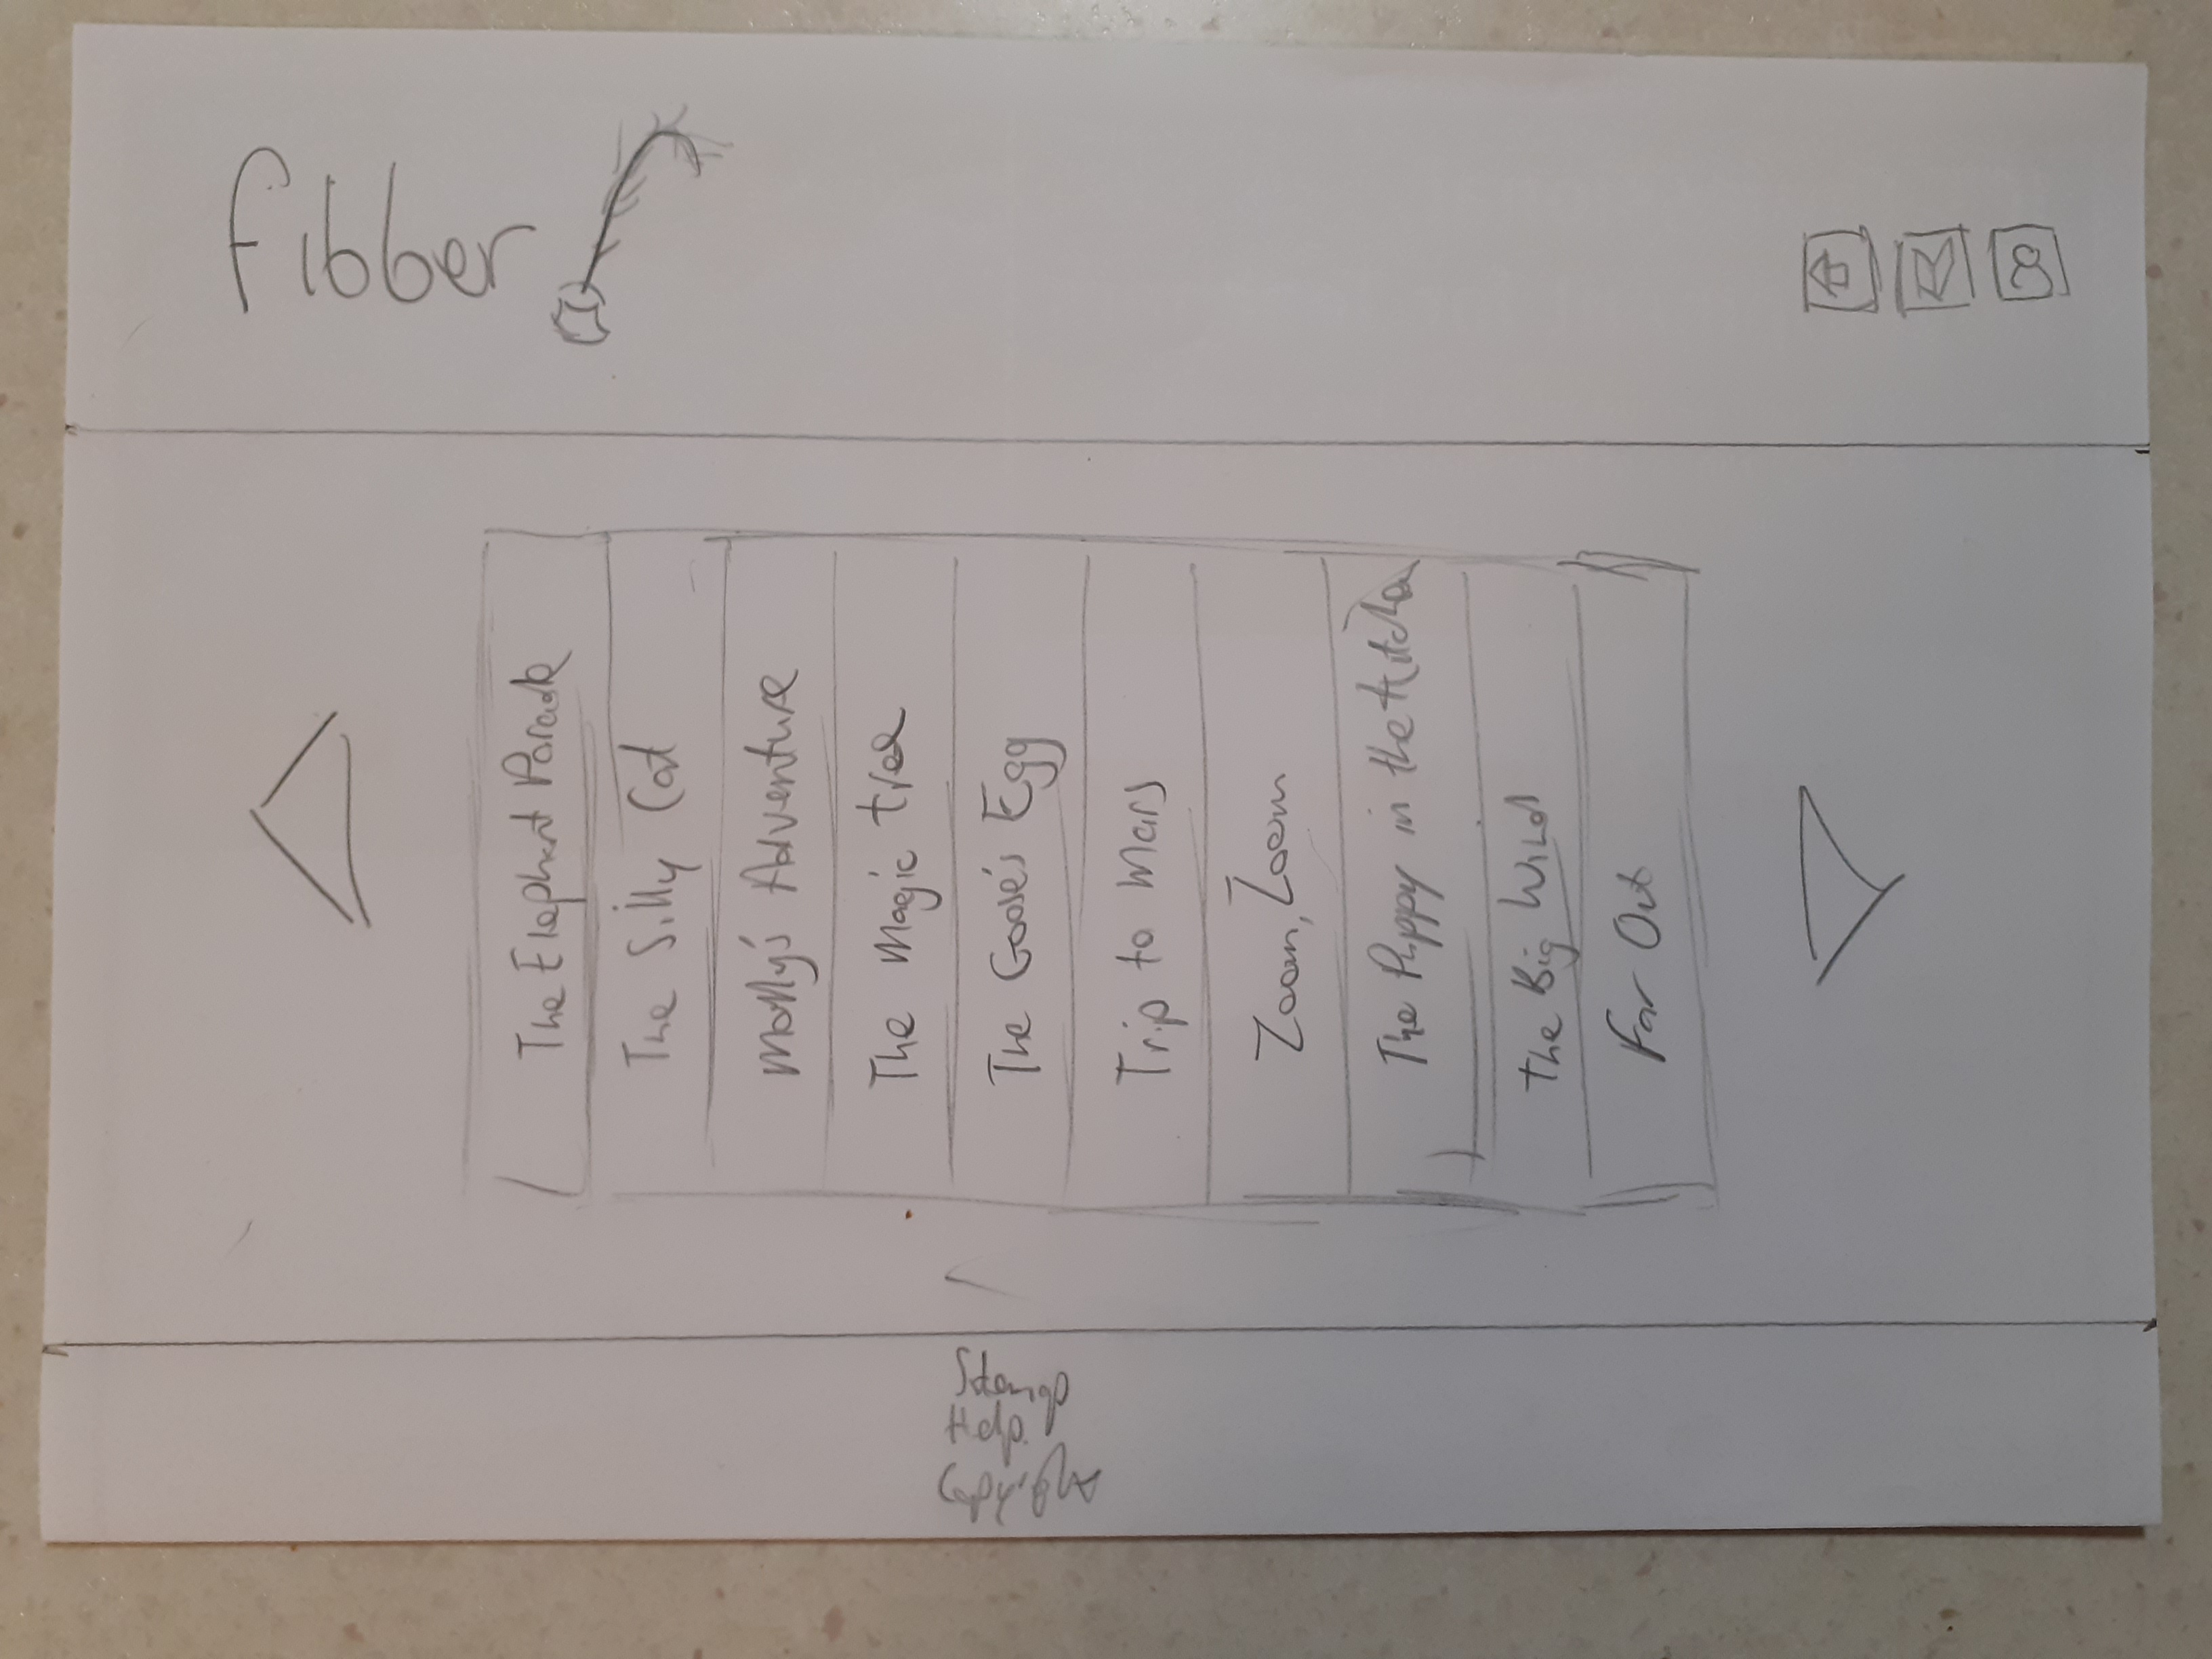 Fibber
The Elephant Parade
The Silly Cat
Molly's Adventure
The Magic Tree
The Goose's Egg
Trip to Mars
Zoom, Zoom
The Puppy in the Kitchen
The Big Wind
Far Out
Sitemap
Help
Copyright